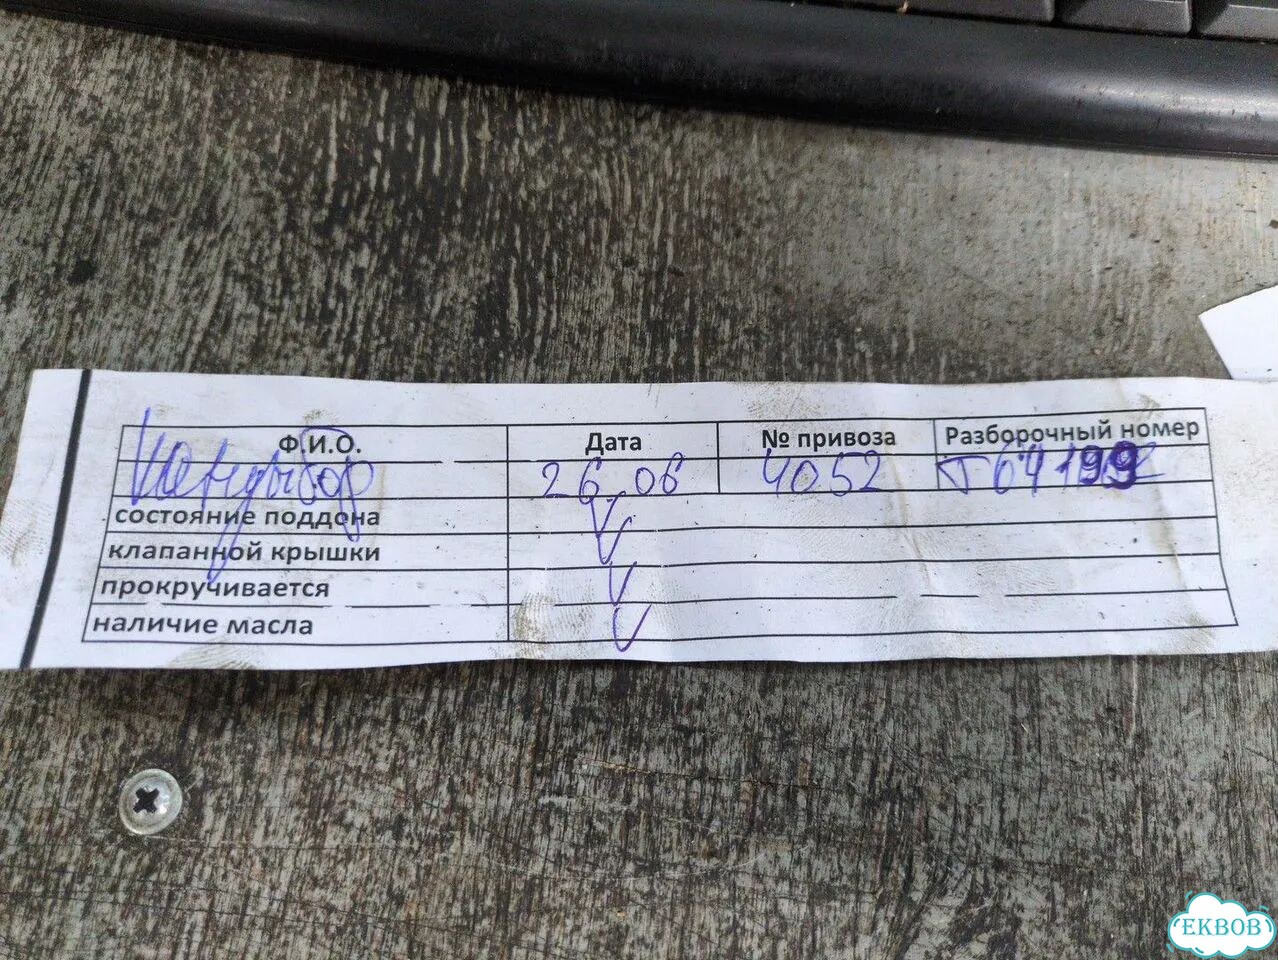 Ф.И.О. Дата № привоза Разборочный номер
26.06 4052
состояние поддона
клапанной крышки
прокручивается
наличие масла
EKBOB